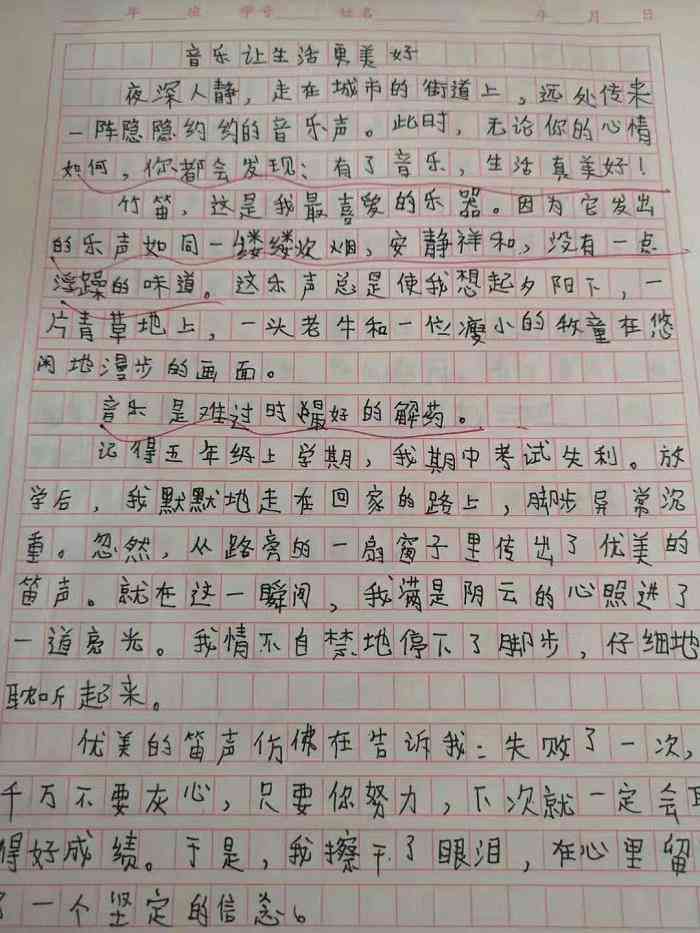 年 班 学号 姓名 年 月 日
音乐让生活更美好
夜深人静，走在城市的街道上，远处传来
一阵隐隐约约的音乐声。此时，无论你的心情
如何，你都会发现：有了音乐，生活真美好！
竹笛，这是我最喜爱的乐器。因为它发出
的乐声如同一缕缕炊烟，安静祥和，没有一点
浮躁的味道。这乐声总是使我想起夕阳下，一
片青草地上，一头老牛和一位瘦小的牧童在悠
闲地漫步的画面。
音乐是难过时最好的解药。
记得五年级上学期，我期中考试失利。放
学后，我默默地走在回家的路上，脚步异常沉
重。忽然，从路旁的一扇窗子里传出了优美的
笛声。就在这一瞬间，我满是阴云的心照进了
一道亮光。我情不自禁地停下了脚步，仔细地
聆听起来。
优美的笛声仿佛在告诉我：失败了一次，
千万不要灰心，只要你努力，下次就一定会取
得好成绩。于是，我擦干了眼泪，在心里留
了一个坚定的信念。